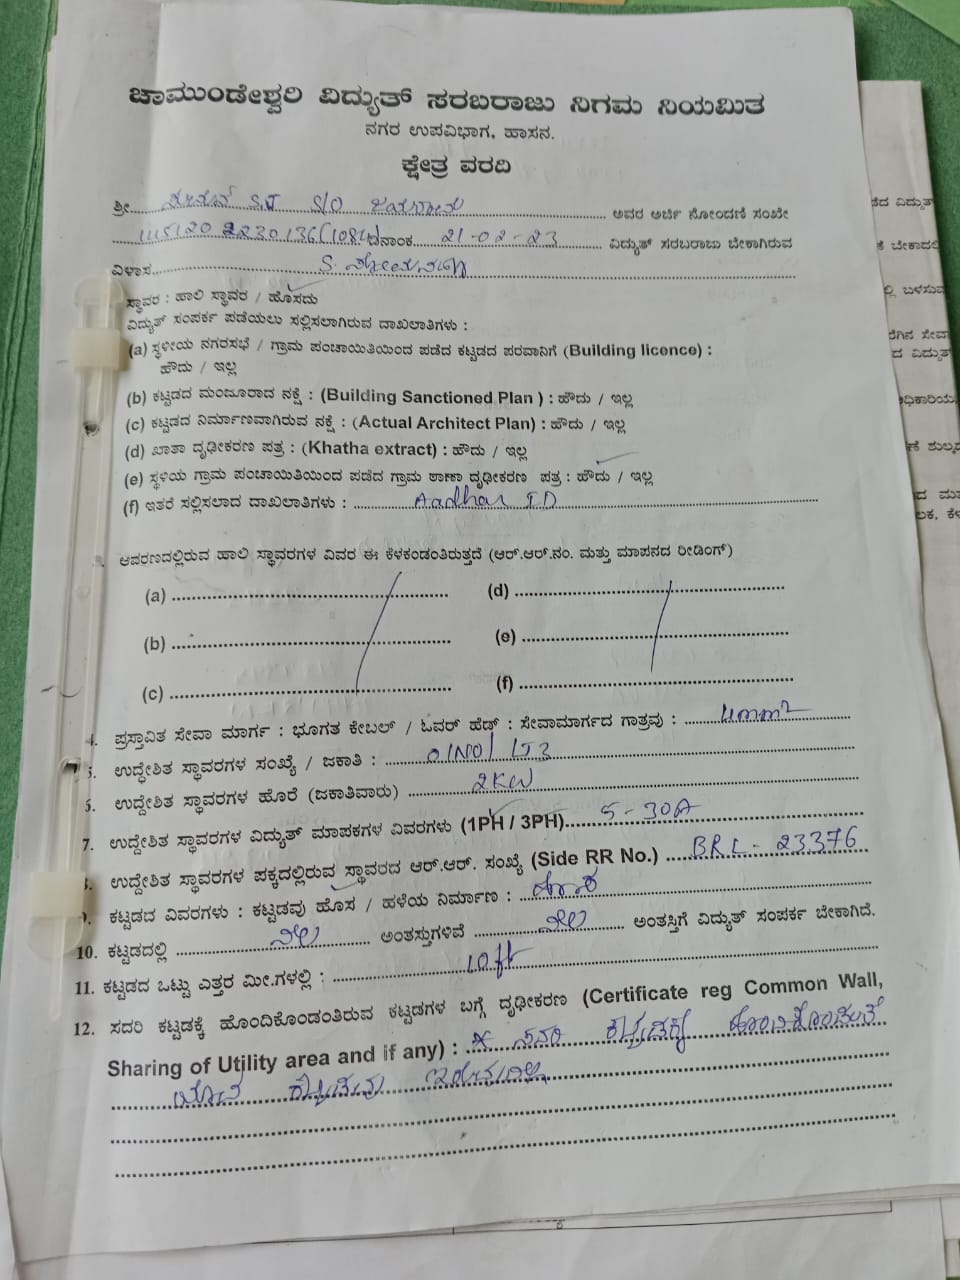 ಚಾಮುಂಡೇಶ್ವರಿ ವಿದ್ಯುತ್ ಸರಬರಾಜು ನಿಗಮ ನಿಯಮಿತ
ನಗರ ಉಪವಿಭಾಗ, ಹಾಸನ.
ಕ್ಷೇತ್ರ ವರದಿ
ಶ್ರೀ........ S.J S/O ........ ಅವರ ಅರ್ಜಿ ನೋಂದಣಿ ಸಂಖೇ
ದಿನಾಂಕ.....21-02-23........ ವಿದ್ಯುತ್ ಸರಬರಾಜು ಬೇಕಾಗಿರುವ
ವಿಳಾಸ........ S. ........
ಸ್ಥಾವರ : ಹಾಲಿ ಸ್ಥಾವರ / ಹೊಸದು
ವಿದ್ಯುತ್ ಸಂಪರ್ಕ ಪಡೆಯಲು ಸಲ್ಲಿಸಲಾಗಿರುವ ದಾಖಲಾತಿಗಳು :
(a) ಸ್ಥಳೀಯ ನಗರಸಭೆ / ಗ್ರಾಮ ಪಂಚಾಯಿತಿಯಿಂದ ಪಡೆದ ಕಟ್ಟಡದ ಪರವಾನಿಗೆ (Building licence) :
ಹೌದು / ಇಲ್ಲ
(b) ಕಟ್ಟಡದ ಮಂಜೂರಾದ ನಕ್ಷೆ : (Building Sanctioned Plan ) : ಹೌದು / ಇಲ್ಲ
(c) ಕಟ್ಟಡದ ನಿರ್ಮಾಣವಾಗಿರುವ ನಕ್ಷೆ : (Actual Architect Plan) : ಹೌದು / ಇಲ್ಲ
(d) ಖಾತಾ ದೃಢೀಕರಣ ಪತ್ರ : (Khatha extract) : ಹೌದು / ಇಲ್ಲ
(e) ಸ್ಥಳಿಯ ಗ್ರಾಮ ಪಂಚಾಯಿತಿಯಿಂದ ಪಡೆದ ಗ್ರಾಮ ಠಾಣಾ ದೃಢೀಕರಣ ಪತ್ರ : ಹೌದು / ಇಲ್ಲ
(f) ಇತರೆ ಸಲ್ಲಿಸಲಾದ ದಾಖಲಾತಿಗಳು : ........ Aadhar ID ........
ಆವರಣದಲ್ಲಿರುವ ಹಾಲಿ ಸ್ಥಾವರಗಳ ವಿವರ ಈ ಕೆಳಕಂಡಂತಿರುತ್ತದೆ (ಆರ್.ಆರ್.ನಂ. ಮತ್ತು ಮಾಪನದ ರೀಡಿಂಗ್)
(a) ........ (d) ........
(b) ........ (e) ........
(c) ........ (f) ........
4. ಪ್ರಸ್ತಾವಿತ ಸೇವಾ ಮಾರ್ಗ : ಭೂಗತ ಕೇಬಲ್ / ಓವರ್ ಹೆಡ್ : ಸೇವಾಮಾರ್ಗದ ಗಾತ್ರವು : ........ 4mm2 ........
5. ಉದ್ಧೇಶಿತ ಸ್ಥಾವರಗಳ ಸಂಖ್ಯೆ / ಜಕಾತಿ : ........ 01NO/ LT3 ........
6. ಉದ್ದೇಶಿತ ಸ್ಥಾವರಗಳ ಹೊರೆ (ಜಕಾತಿವಾರು) ........ 2KW ........
7. ಉದ್ದೇಶಿತ ಸ್ಥಾವರಗಳ ವಿದ್ಯುತ್ ಮಾಪಕಗಳ ವಿವರಗಳು (1PH / 3PH)........ 5-30A ........
8. ಉದ್ದೇಶಿತ ಸ್ಥಾವರಗಳ ಪಕ್ಕದಲ್ಲಿರುವ ಸ್ಥಾವರದ ಆರ್.ಆರ್. ಸಂಖ್ಯೆ (Side RR No.) .... BRL-23376
9. ಕಟ್ಟಡದ ವಿವರಗಳು : ಕಟ್ಟಡವು ಹೊಸ / ಹಳೆಯ ನಿರ್ಮಾಣ : ........
10. ಕಟ್ಟಡದಲ್ಲಿ ........ ನೆಲ ........ ಅಂತಸ್ತುಗಳಿವೆ ........ ನೆಲ ........ ಅಂತಸ್ತಿಗೆ ವಿದ್ಯುತ್ ಸಂಪರ್ಕ ಬೇಕಾಗಿದೆ.
11. ಕಟ್ಟಡದ ಒಟ್ಟು ಎತ್ತರ ಮೀ.ಗಳಲ್ಲಿ : ........ 10ft ........
12. ಸದರಿ ಕಟ್ಟಡಕ್ಕೆ ಹೊಂದಿಕೊಂಡಂತಿರುವ ಕಟ್ಟಡಗಳ ಬಗ್ಗೆ ದೃಢೀಕರಣ (Certificate reg Common Wall,
Sharing of Utility area and if any) : ಸದರಿ ಕಟ್ಟಡಕ್ಕೆ ಹೊಂದಿಕೊಂಡಂತೆ
ಯಾವ ಕಟ್ಟಡವು ಇರುವುದಿಲ್ಲ